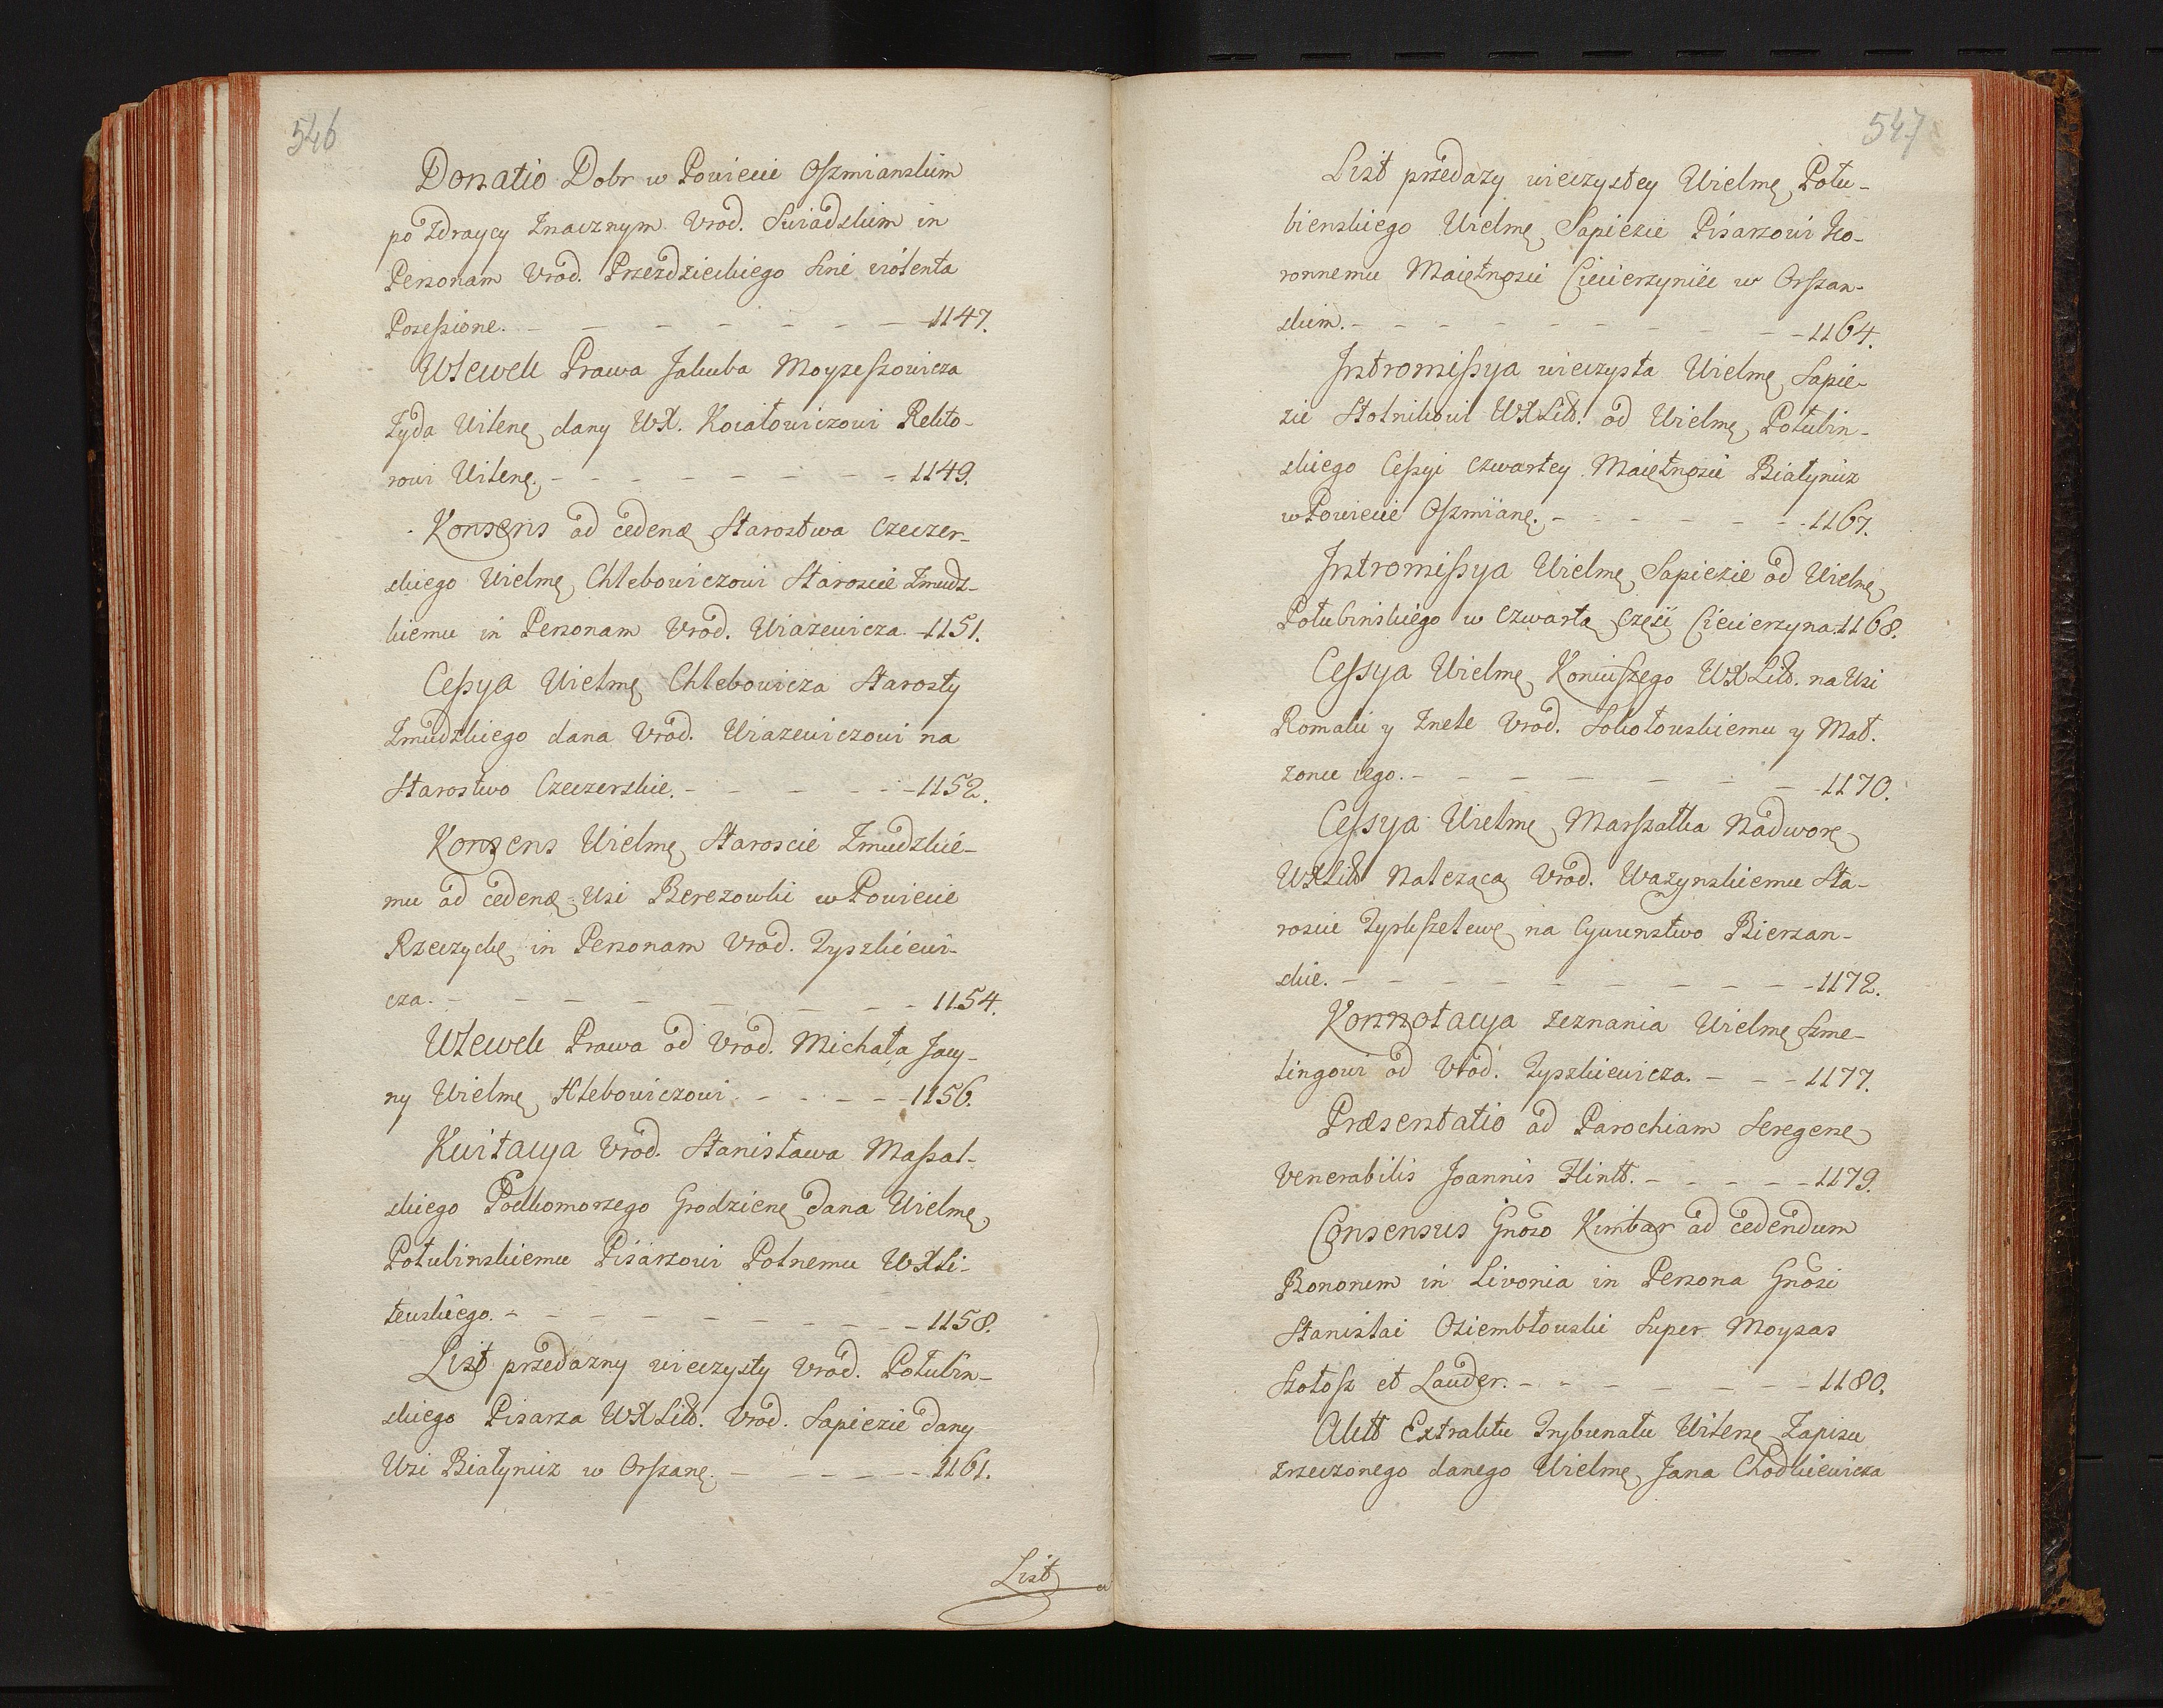 546
Donatio Dobr w Powiecie Oszmianskim
po Zdraycy Znacznym Vrod. Swiadskim in
Personam Vrod. Przezdzieckiego Sine violenta
Possessione. - - - - - - - 1147.
Wlewek Prawa Jakuba Moyzeszowicza
Zyda Wilenę dany WX. Koiałowiczowi Rekto-
rowi Wilenę. - - - - - - - 1149.
Konsens ad cedenæ Starostwa Czeczer-
skiego Wielmę Chlebowiczowi Staroscie Zmudz-
kiemu in Personam Vrod. Wiazewicza - 1151.
Cessya Wielmę Chlebowicza Starosty
Zmudzkiego dana Vrod. Wiazewiczowi na
Starostwo Czeczerskie. - - - - - 1152.
Konsens Wielmę Staroscie Zmudzkie-
mu ad cedenæ Wsi Berezowki w Powiecie
Rzeczyckę in Personam Vrod. Tyszkiewi-
cza. - - - - - - - 1154.
Wlewek Prawa od Vrod. Michała Jacy-
ny Wielmę Hlebowiczowi. - - - - - 1156.
Kwitacya Vrod. Stanisława Massal-
skiego Podkomorzego Grodzienę dana Wielmę
Połubinskiemu Pisarzowi Polnemu WXLi-
tewskiego. - - - - - - - - 1158.
List przedazny wieczysty Vrod. Połubin-
skiego Pisarza WXLitt. Vrod. Sapiezie dany
Wsi Białynicz w Orszanę. - - - - - 1161.
List
547
List przedazy wieczystey Wielmę Połu-
bienskiego Wielmę Sapiezie Pisarzowi Ko-
ronnemu Maiętnosci Ciecierzynice w Orszan-
skim. - - - - - - - - 1164.
Intromissya wieczysta Wielmę Sapie-
zie Stolnikowi WXLitt. od Wielmę Połubin-
skiego Cessyi czwartey Maiętnosci Białynicz
w Powiecie Oszmianę. - - - - - - 1167.
Intromissya Wielmę Sapiezie od Wielmę
Połubinskiego w czwartą częsć Ciecierzyna. 1168.
Cessya Wielmę Koniuszego WXLitt. na Wsi
Romatki y Znele Vrod. Sokołowskiemu y Mał.
zonce iego. - - - - - - - 1170.
Cessya Wielmę Marszałka Nadworę
WXLitt Nalezącą Vrod. Wazynskiemu Sta-
roscie na Cywunstwo Bierzan-
skie. - - - - - - - - 1172.
Konnotacya zeznania Wielmę Szme-
lingowi od Vrod. Tyszkiewicza. - - - 1177.
Præsentatio ad Parochiam Seregenę
Venerabilis Joannis Flintt. - - - - - 1179.
Consensus Gnoso Kimbar ad cedendum
Bononem in Livonia in Persona Gnosi
Stanislai Osiembłowski Super Moyzas
Szołosz et Lauder. - - - - - - - 1180.
Aktt Extraktu Trybunału Wilenę Zapisu
zrzeczonego danego Wielmę Jana Chodkiewicza